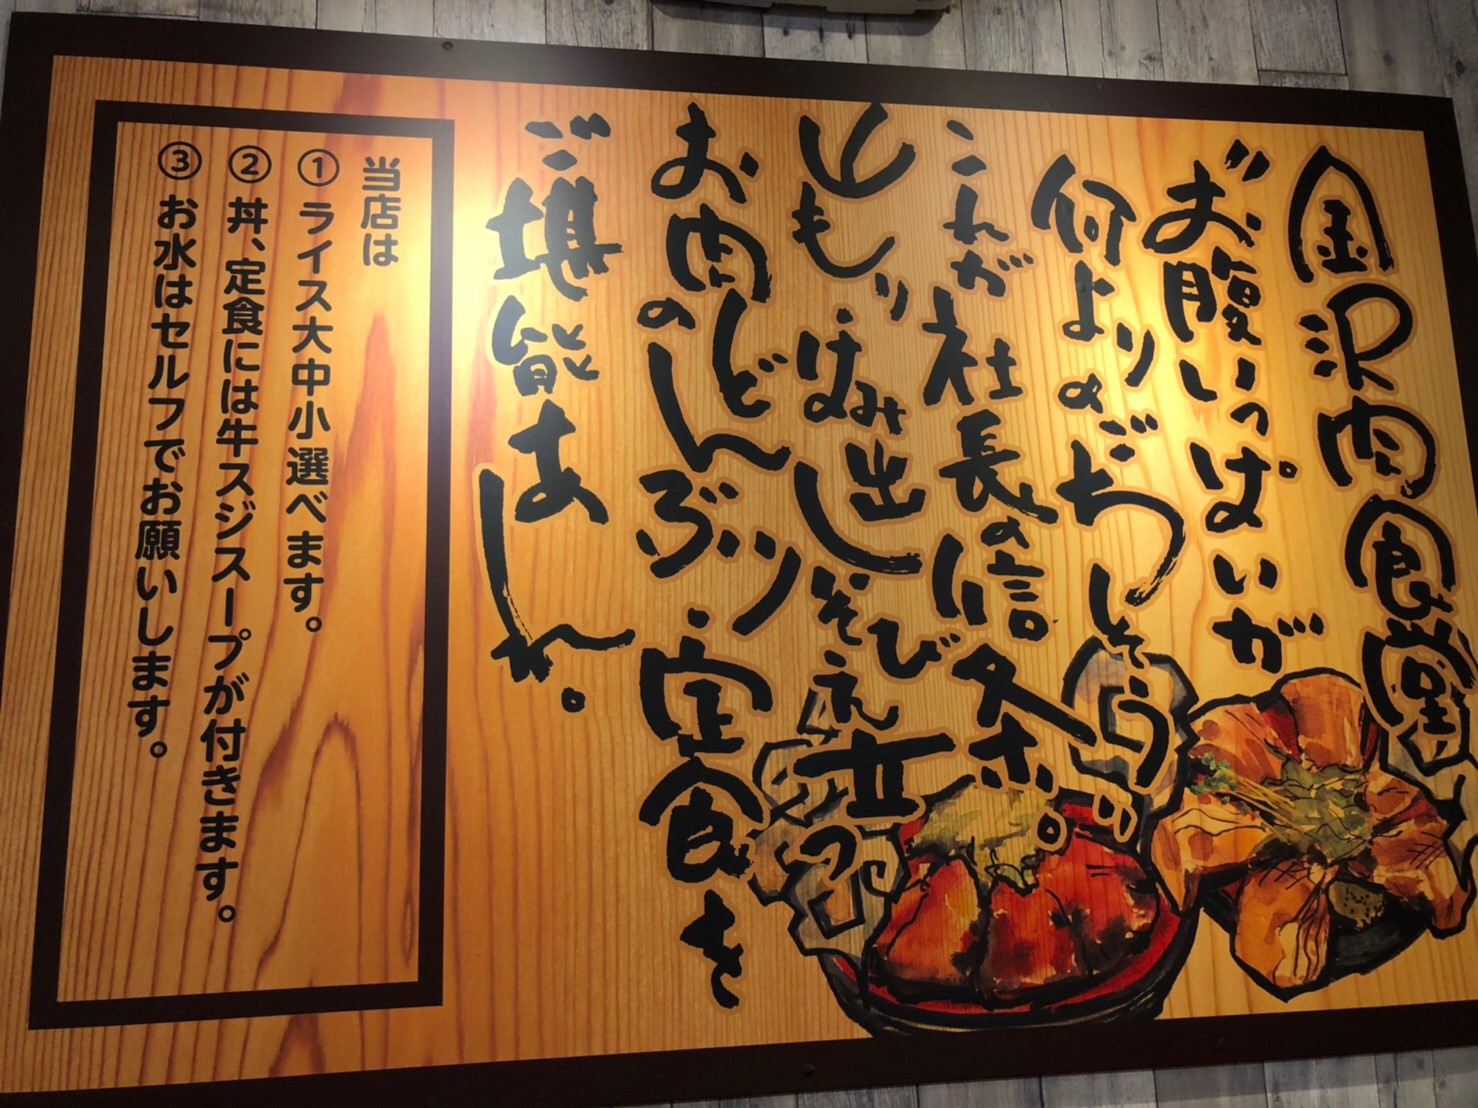 金沢肉食堂
“お腹いっぱいが
何よりのごちそう”
これが社長の信条。
山もりはみ出しそびえ立つ
お肉のどんぶり・定食を
ご堪能あれ。
当店は
①ライス大中小選べます。
②丼、定食には牛スジスープが付きます。
③お水はセルフでお願いします。